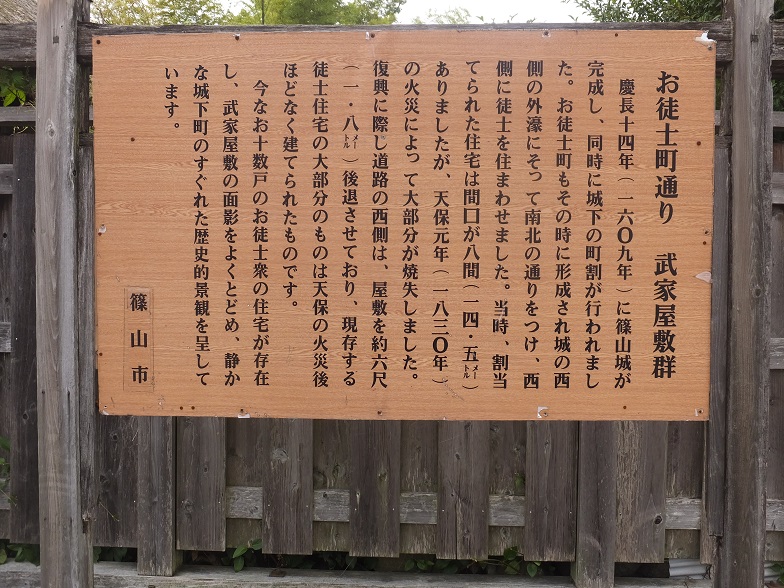 お徒士町通り　武家屋敷群
慶長十四年(一六〇九年)に篠山城が
完成し、同時に城下の町割が行われまし
た。お徒士町もその時に形成され城の西
側の外濠にそって南北の通りをつけ、西
側に徒士を住まわせました。当時、割当
てられた住宅は間口が八間(一四・五メートル)
ありましたが、天保元年(一八三〇年)
の火災によって大部分が焼失しました。
復興に際し道路の西側は、屋敷を約六尺
(一・八メートル)後退させており、現存する
徒士住宅の大部分のものは天保の火災後
ほどなく建てられたものです。
今なお十数戸のお徒士衆の住宅が存在
し、武家屋敷の面影をよくとどめ、静か
な城下町のすぐれた歴史的景観を呈して
います。
篠山市